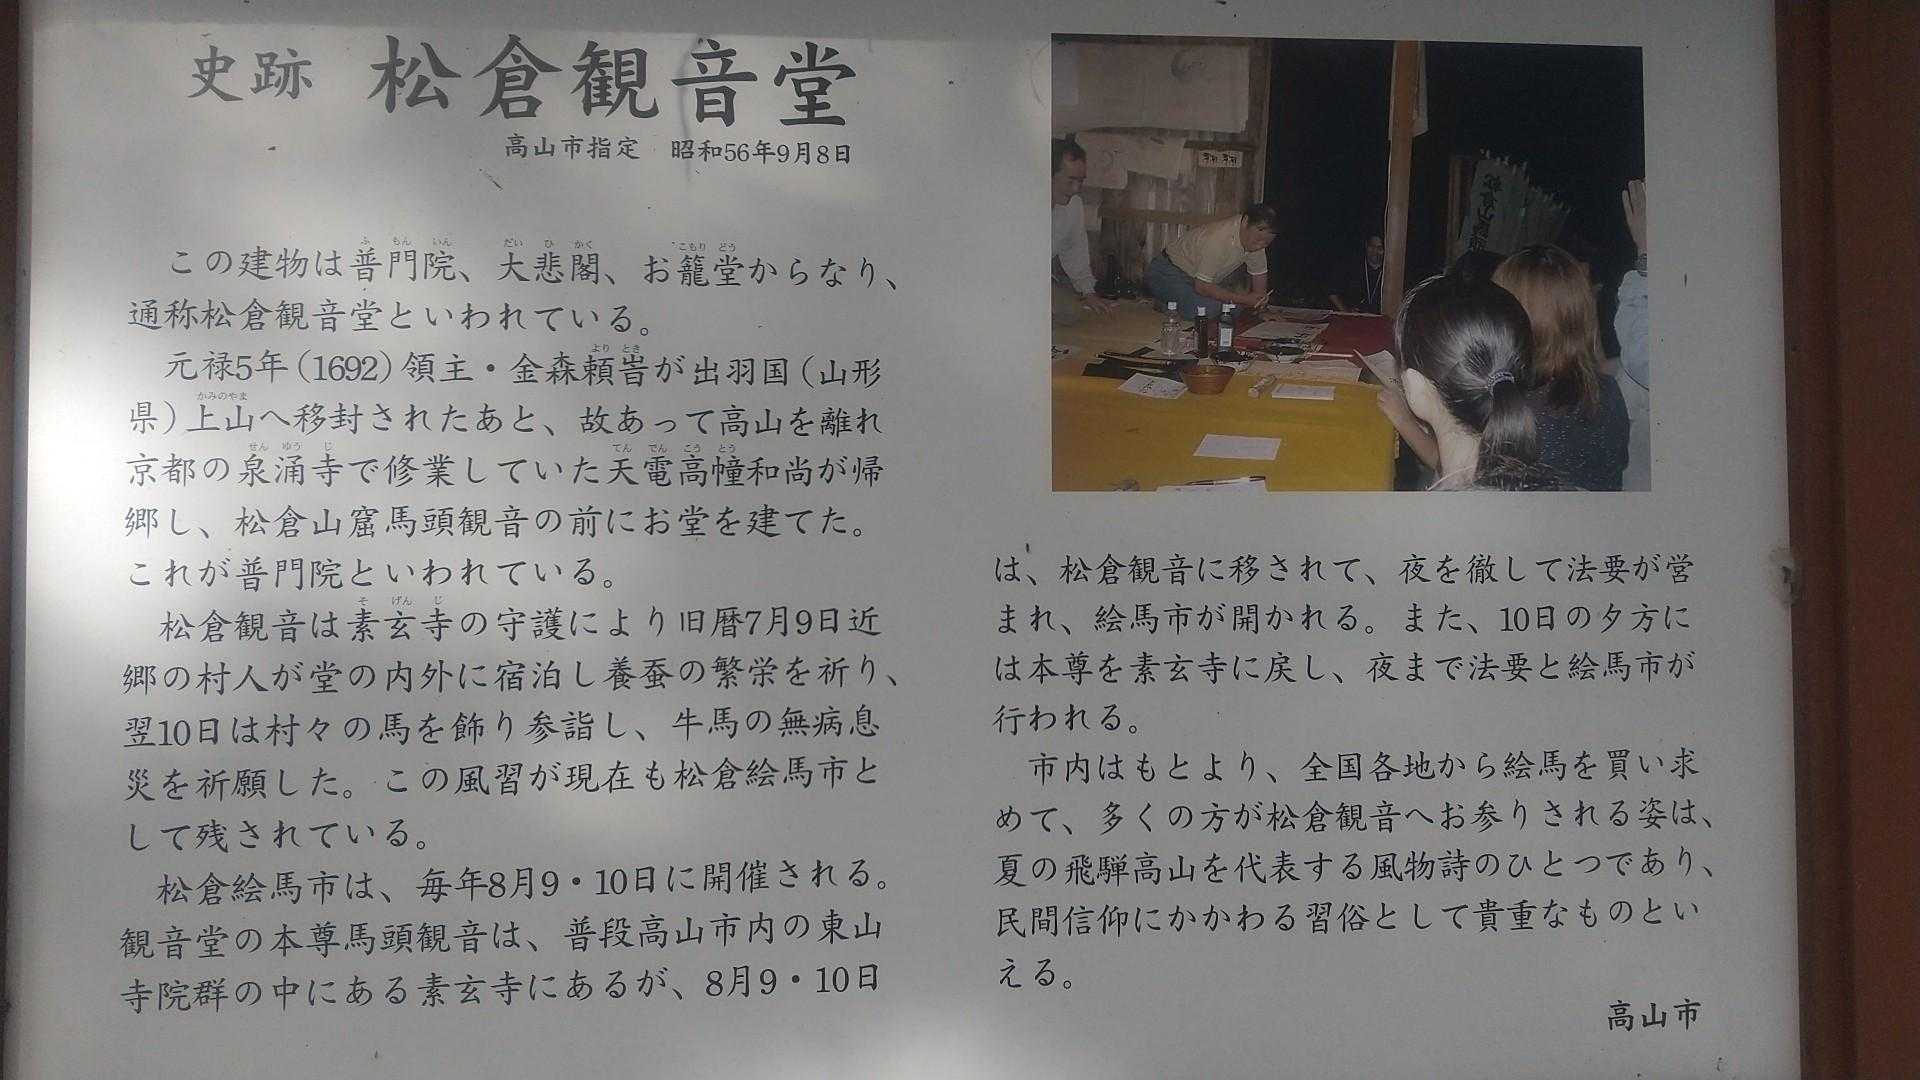 史跡 松倉観音堂
高山市指定 昭和56年9月8日
この建物は普門院、大悲閣、お籠堂からなり、
通称松倉観音堂といわれている。
元禄5年(1692)領主・金森頼旹が出羽国(山形
県)上山へ移封されたあと、故あって高山を離れ
京都の泉涌寺で修業していた天電高幢和尚が帰
郷し、松倉山窟馬頭観音の前にお堂を建てた。
これが普門院といわれている。
松倉観音は素玄寺の守護により旧暦7月9日近
郷の村人が堂の内外に宿泊し養蚕の繁栄を祈り、
翌10日は村々の馬を飾り参詣し、牛馬の無病息
災を祈願した。この風習が現在も松倉絵馬市と
して残されている。
松倉絵馬市は、毎年8月9・10日に開催される。
観音堂の本尊馬頭観音は、普段高山市内の東山
寺院群の中にある素玄寺にあるが、8月9・10日
は、松倉観音に移されて、夜を徹して法要が営
まれ、絵馬市が開かれる。また、10日の夕方に
は本尊を素玄寺に戻し、夜まで法要と絵馬市が
行われる。
市内はもとより、全国各地から絵馬を買い求
めて、多くの方が松倉観音へお参りされる姿は、
夏の飛騨高山を代表する風物詩のひとつであり、
民間信仰にかかわる習俗として貴重なものとい
える。
高山市